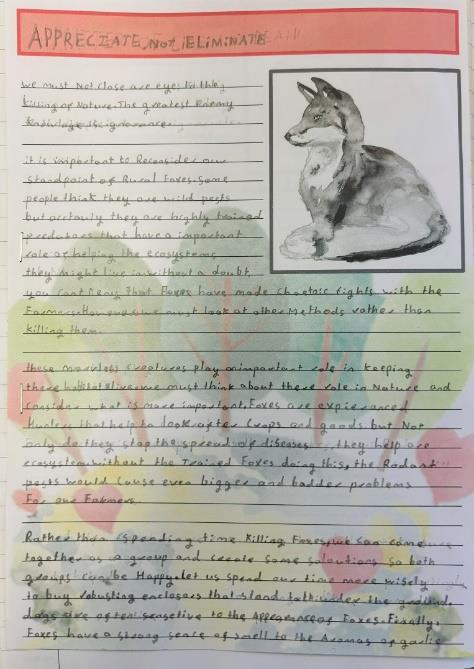 APPRECIATE, Not ELiMiNATE
we must Not close are eyes to the
killing of Nature. The greatest Enemy
knowledge is ignorance.
it is important to Reconsider our
standpoint of Rural Foxes. Some
people think they are wild pests
but actauly they are highly trained
predators that have a important
role of helping the ecosystems
they might live in without a doubt,
you cant Deny that Foxes have made chaotic fights with the
Farmers. How ever we must look at other Methods rather than
killing them.
these creatures play an important role in keeping
there we must think about there role in Nature and
Consider what is more important. Foxes are expierenced
Hunters that help to look after Crops and goods but Not
only do they stop the spread of diseases they help are
ecosystem. without the trained Foxes doing this, the Rodant
pests would Cause even bigger and badder problems
For our Farmers.
Rather than spending time killing Foxes, we can come
together as a group and create some soloutions so both
groups can be Happy. let us spend our time more wisely
to buy enclosers that stand under the ground.
dogs are often sensetive to the of Foxes. Finally,
Foxes have a strong sence of smell to the Aromas of garlic